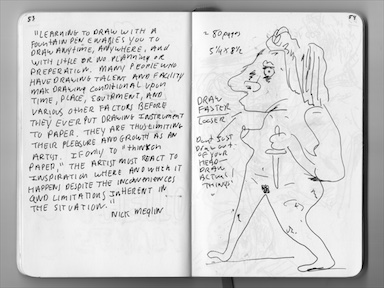 53
"LEARNING TO DRAW WITH A
FOUNTAIN PEN ENABLES YOU TO
DRAW ANYTIME, ANYWHERE, AND
WITH LITTLE OR NO PLANNING OR
PREPERATION. MANY PEOPLE WHO
HAVE DRAWING TALENT AND FACILITY
MAK DRAWING CONDITIONAL UPON
TIME, PLACE, EQUIPMENT, AND
VARIOUS OTHER FACTORS BEFORE
THEY EVER PUT DRAWING INSTRUMENT
TO PAPER. THEY ARE THUS LIMITING
THEIR PLEASURE AND GROWTH AS AN
ARTIST. IF ONLY TO "THINK ON
PAPER," THE ARTIST MUST REACT TO
INSPIRATION WHERE AND WHEN IT
HAPPENS DESPITE THE INCONVENIENCES
AND LIMITATIONS INHERENT IN
THE SITUATION."
NICK MEGLIN
54
~ 80 pages
5¼ x 8½
DRAW
FASTER
LOOSER
Don't Just
Draw out
OF YOUR
HEAD—
DRAW
ACTUAL
THINGS